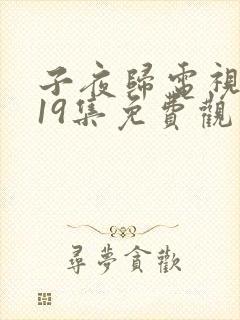 子夜歸電視
19集免費觀
尋夢貪歡